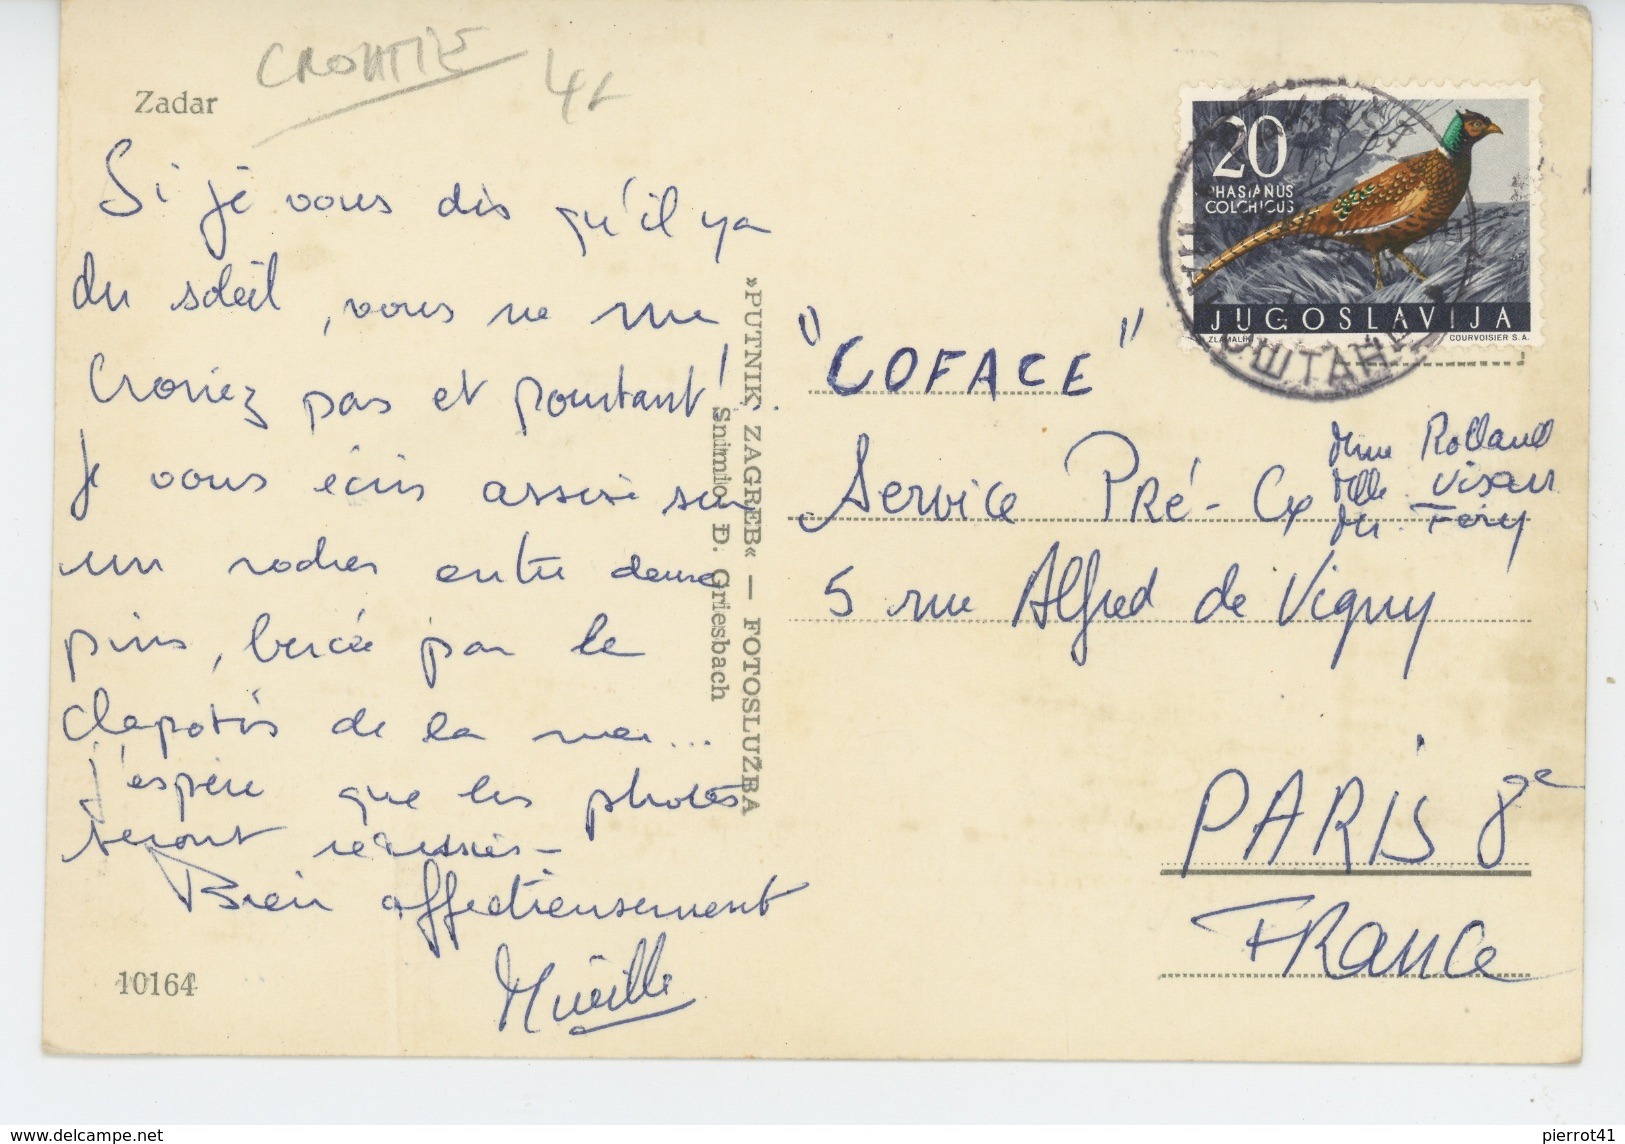 CROATIE
Zadar
Si je vous dis qu'il y a
du soleil, vous ne me
croriez pas et pourtant !
Je vous écris assise sur
un rocher entre deux
pins, bercée par le
clapotis de la mer...
J'espère que les photos
seront réussies -
Bien affectueusement
Mireille
10164
»PUTNIK, ZAGREB« — FOTOSLUŽBA
Snimio Đ. Griesbach
20
PHASIANUS
COLCHICUS
JUGOSLAVIJA
ZLAMALIK COURVOISIER S.A.
"COFACE"
Mme Rolland
Service Pré-Cx Mlle
Mr. Fery
5 rue Alfred de Vigny
PARIS 8e
FRANCE
delcampe.net
pierrot41